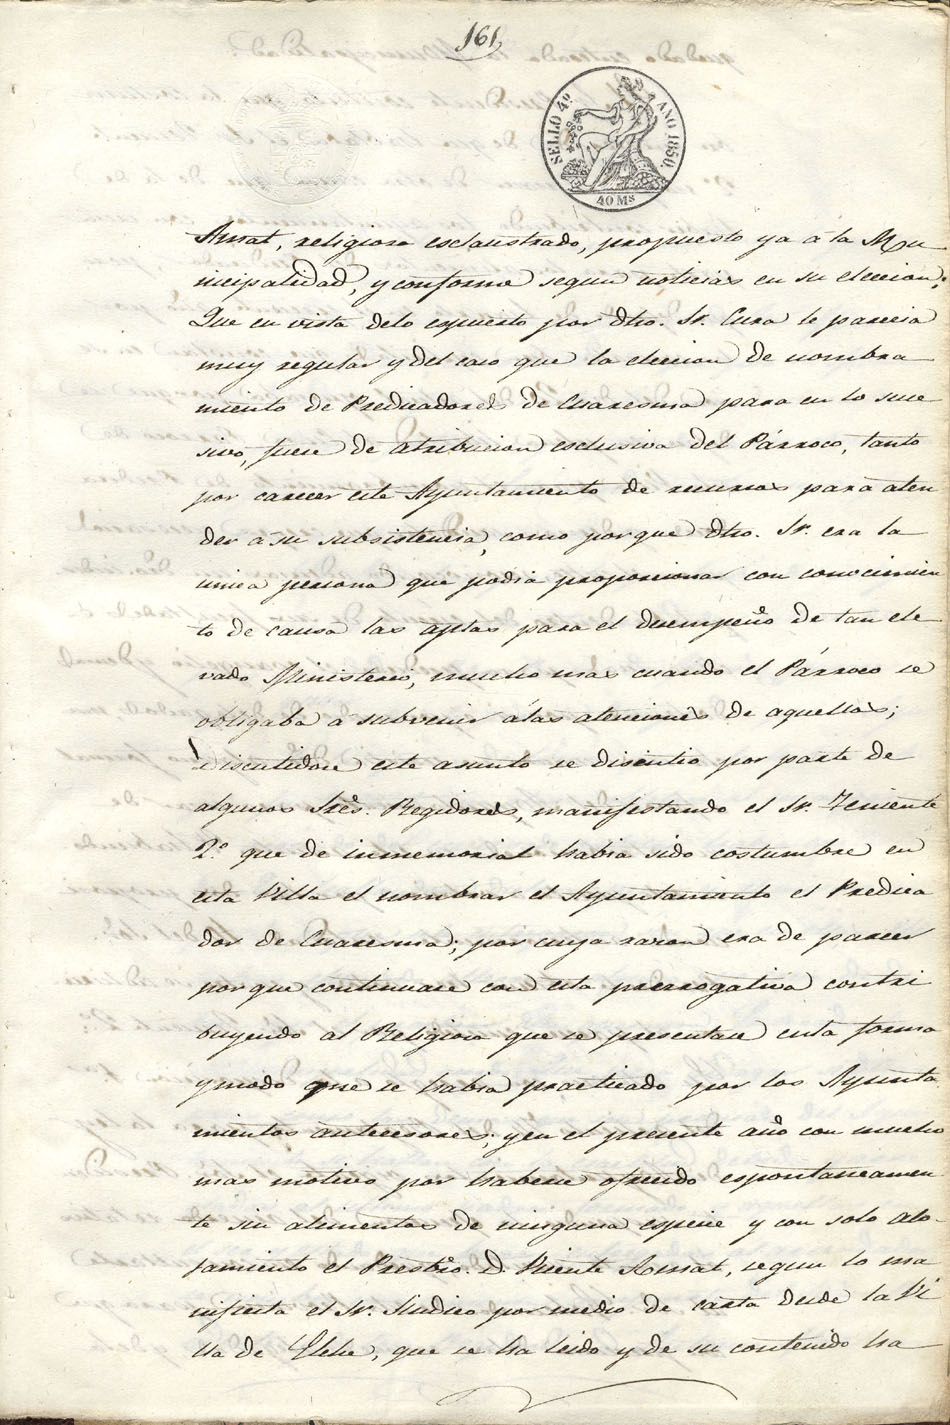 161
SELLO 4º AÑO 1850.
40 Mˢ
Amat, religioso esclaustrado, propuesto ya á la Mu
nicipalidad, y conforme segun noticias en su eleccion;
Que en vista delo espuesto por dho. Sr. Cura le parecia
muy regular y del caso que la eleccion de nombra
miento de Predicadores de Cuaresma para en lo suce
sivo, fuese de atribucion esclusiva del Párroco, tanto
por carecer este Ayuntamiento de recursos para aten
der a su subsistencia, como porque dho. Sr. era la
unica persona que podia proporcionar con conocimien
to de causa las aptas para el desempeño de tan ele
vado Ministerio, mucho mas cuando el Párroco se
obligaba a subvenir álas atenciones de aquellas;
Discutidose este asunto se disintio por parte de
algunos Sres. Regidores, manifestando el Sr. Teniente
2.º que de inmemorial habia sido costumbre en
esta Villa el nombrar el Ayuntamiento el Predica
dor de Cuaresma; por cuya razon era de parecer
porque continuase con esta prerrogativa contri
buyendo al Religioso que se presentase enla forma
ymodo que se habia practicado por los Ayunta
mientos antecesores; yen el presente año con mucho
mas motivo por haberse ofrecido espontaneamen
te sin alimentos de ninguna especie y con solo alo-
jamiento el Presbro. D. Vicente Amat, segun lo ma
nifiesta el Sr. Sindico por medio de carta desde la Vi
lla de Elche, que se ha leido y de su contenido ha